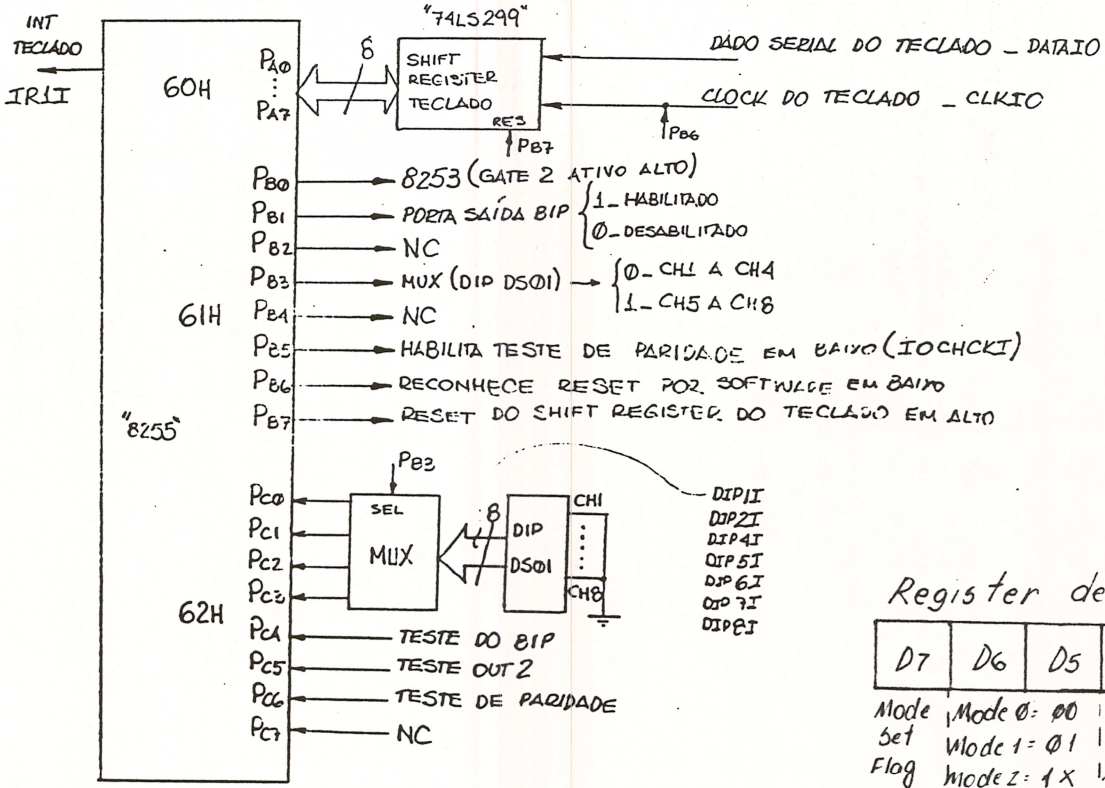 INT
TECLADO
IR1I
"8255"
60H
PAØ
PA7
8
"74LS299"
SHIFT
REGISTER
TECLADO
RES
PB7
DADO SERIAL DO TECLADO _ DATAIO
CLOCK DO TECLADO _ CLKIO
PB6
61H
PBØ 8253 (GATE 2 ATIVO ALTO)
PB1 PORTA SAÍDA BIP
1_ HABILITADO
Ø_ DESABILITADO
PB2 NC
PB3 MUX (DIP DSØ1)
Ø_ CH1 A CH4
1_ CH5 A CH8
PB4 NC
PB5 HABILITA TESTE DE PARIDADE EM BAIXO (IOCHCKI)
PB6 RECONHECE RESET POR SOFTWARE EM BAIXO
PB7 RESET DO SHIFT REGISTER DO TECLADO EM ALTO
62H
PCØ
PC1
PC2
PC3
PB3
SEL
MUX
8
DIP
DSØ1
CH1
CH8
DIP1I
DIP2I
DIP4I
DIP5I
DIP6I
DIP7I
DIP8I
PC4 TESTE DO BIP
PC5 TESTE OUT 2
PC6 TESTE DE PARIDADE
PC7 NC
Register de
D7 D6 D5
Mode Set Flag
Mode Ø: ØØ
Mode 1 = Ø1
Mode 2: 1X